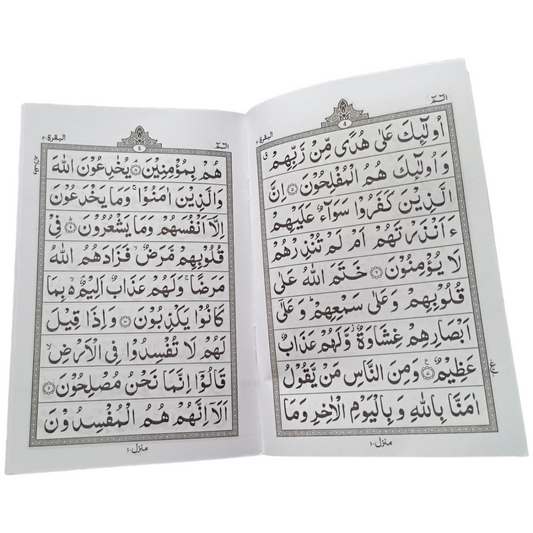 البقرة ٢
4
الٓمّٓ
اُولٰٓئِكَ عَلٰى هُدًى مِّنْ رَّبِّهِمْ
وَ اُولٰٓئِكَ هُمُ الْمُفْلِحُوْنَ ۝ اِنَّ
الَّذِيْنَ كَفَرُوْا سَوَآءٌ عَلَيْهِمْ
ءَاَنْذَرْتَهُمْ اَمْ لَمْ تُنْذِرْهُمْ
لَا يُؤْمِنُوْنَ ۝ خَتَمَ اللّٰهُ عَلٰى
قُلُوْبِهِمْ وَعَلٰى سَمْعِهِمْ ؕ وَعَلٰٓى
اَبْصَارِهِمْ غِشَاوَةٌ ؗ وَّلَهُمْ عَذَابٌ
عَظِيْمٌ ۝ وَمِنَ النَّاسِ مَنْ يَّقُوْلُ
اٰمَنَّا بِاللّٰهِ وَ بِالْيَوْمِ الْاٰخِرِ وَمَا
منزل ١
البقرة ٢
5
الٓمّٓ
هُمْ بِمُؤْمِنِيْنَ ۝ يُخٰدِعُوْنَ اللّٰهَ
وَالَّذِيْنَ اٰمَنُوْا ۚ وَمَا يَخْدَعُوْنَ
اِلَّاۤ اَنْفُسَهُمْ وَمَا يَشْعُرُوْنَ ۝ فِىْ
قُلُوْبِهِمْ مَّرَضٌ ۙ فَزَادَهُمُ اللّٰهُ
مَرَضًا ۚ وَلَهُمْ عَذَابٌ اَلِيْمٌۢ ۙ۬ بِمَا
كَانُوْا يَكْذِبُوْنَ ۝ وَاِذَا قِيْلَ
لَهُمْ لَا تُفْسِدُوْا فِى الْاَرْضِ ۙ
قَالُوْۤا اِنَّمَا نَحْنُ مُصْلِحُوْنَ ۝
اَلَاۤ اِنَّهُمْ هُمُ الْمُفْسِدُوْنَ
منزل ١